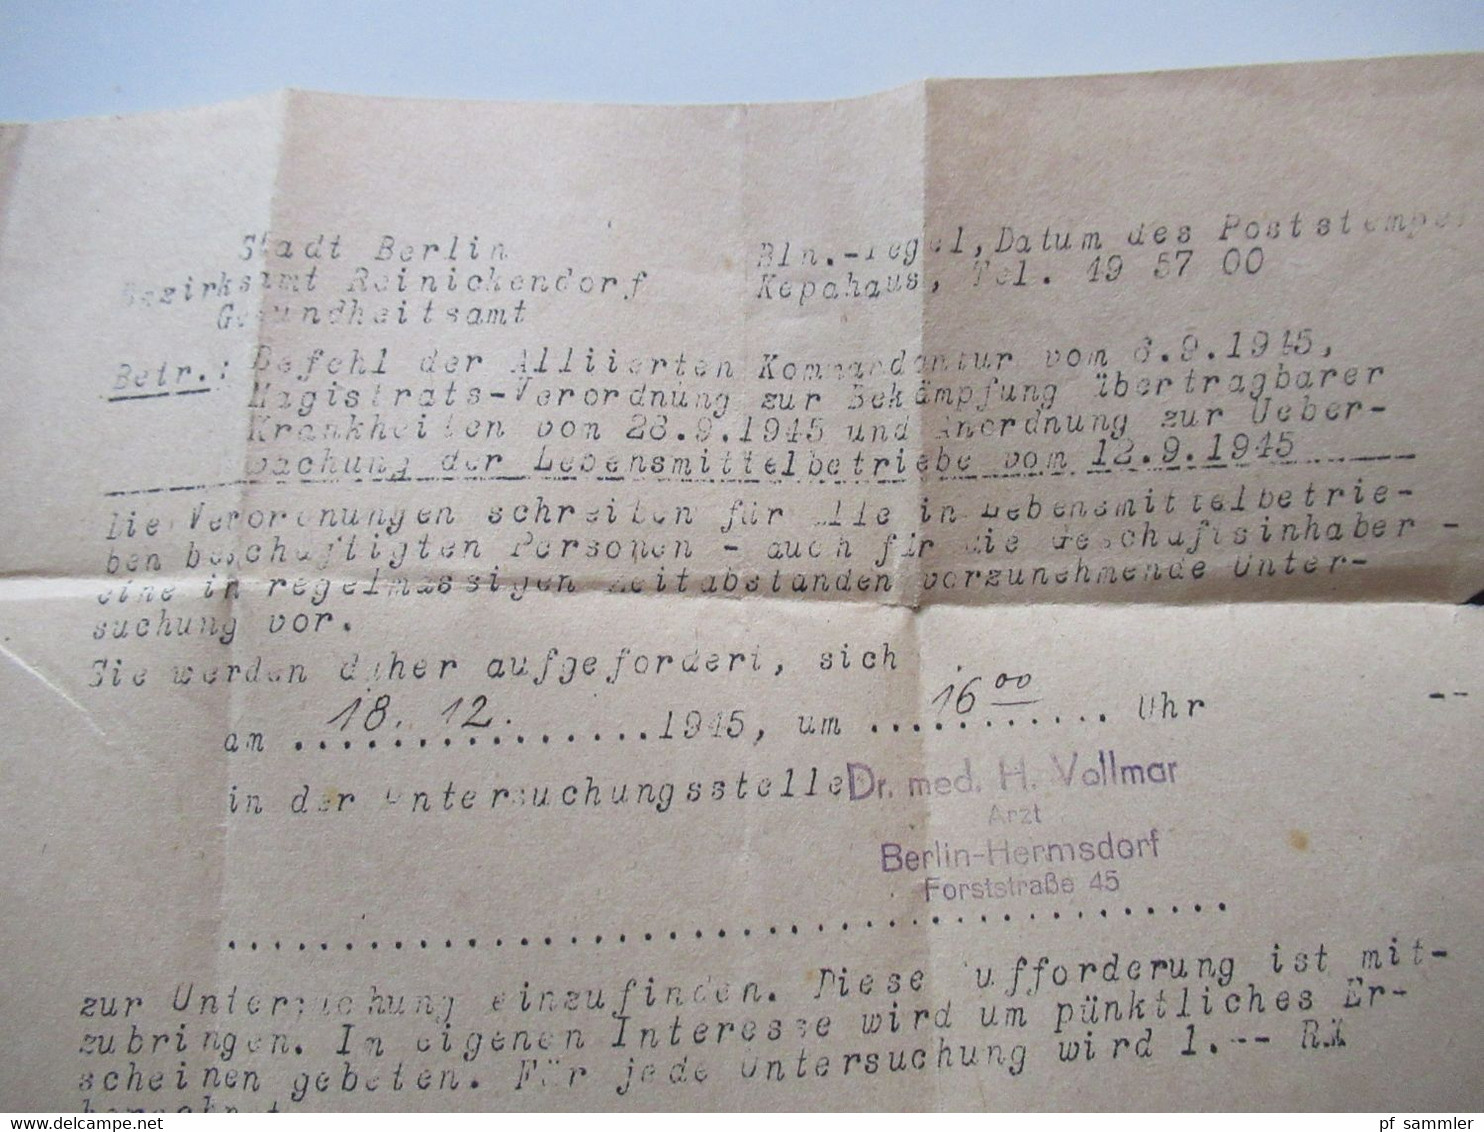 Stadt Berlin
Bezirksamt Reinickendorf
Gesundheitsamt
Bln.-Tegel, Datum des Poststempels
Kepahaus, Tel. 49 57 00
Betr.: Befehl der Alliierten Kommandantur vom 6.9.1945,
Magistrats-Verordnung zur Bekämpfung übertragbarer
Krankheiten vom 28.9.1945 und Anordnung zur Ueber-
wachung der Lebensmittelbetriebe vom 12.9.1945
Die Verordnungen schreiben für alle in Lebensmittelbetrie-
ben beschäftigten Personen - auch für die Geschäftsinhaber -
eine in regelmässigen Zeitabständen vorzunehmende Unter-
suchung vor.
Sie werden daher aufgefordert, sich
am ...18. 12. ...1945, um ...16 00... Uhr --
in der Untersuchungsstelle Dr. med. H. Vollmar
Arzt
Berlin-Hermsdorf
Forststraße 45
zur Untersuchung einzufinden. Diese Aufforderung ist mit-
zubringen. Im eigenen Interesse wird um pünktliches Er-
scheinen gebeten. Für jede Untersuchung wird 1.-- RM
berechnet
www.delcampe.net
pf_sammler